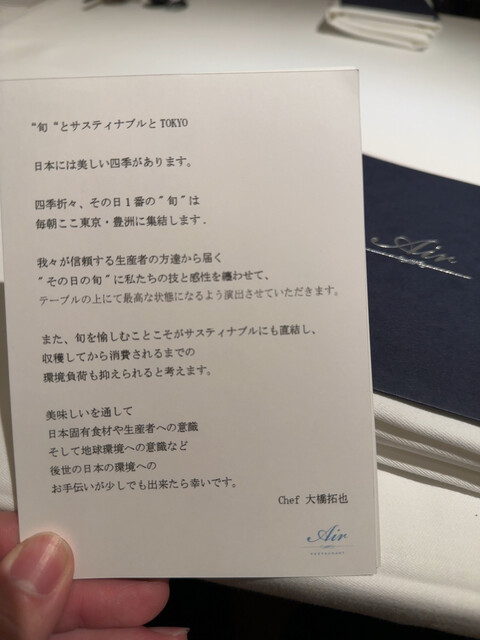 “旬“とサスティナブルとTOKYO
日本には美しい四季があります。
四季折々、その日1番の“旬“は
毎朝ここ東京・豊洲に集結します.
我々が信頼する生産者の方達から届く
“その日の旬“に私たちの技と感性を纏わせて、
テーブルの上にて最高な状態になるよう演出させていただきます。
また、旬を愉しむことこそがサスティナブルにも直結し、
収穫してから消費されるまでの
環境負荷も抑えられると考えます。
美味しいを通して
日本固有食材や生産者への意識
そして地球環境への意識など
後世の日本の環境への
お手伝いが少しでも出来たら幸いです。
Chef 大橋拓也
Air
RESTAURANT
Air